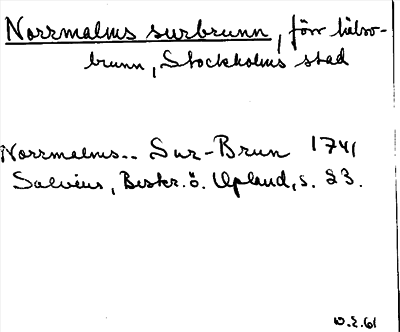 Norrmalms surbrunn, förr hälso-
brunn, Stockholms stad
Norrmalms.. Sur-Brun 1741
Salvius, Beskr. ö. Upland, s. 23.
61